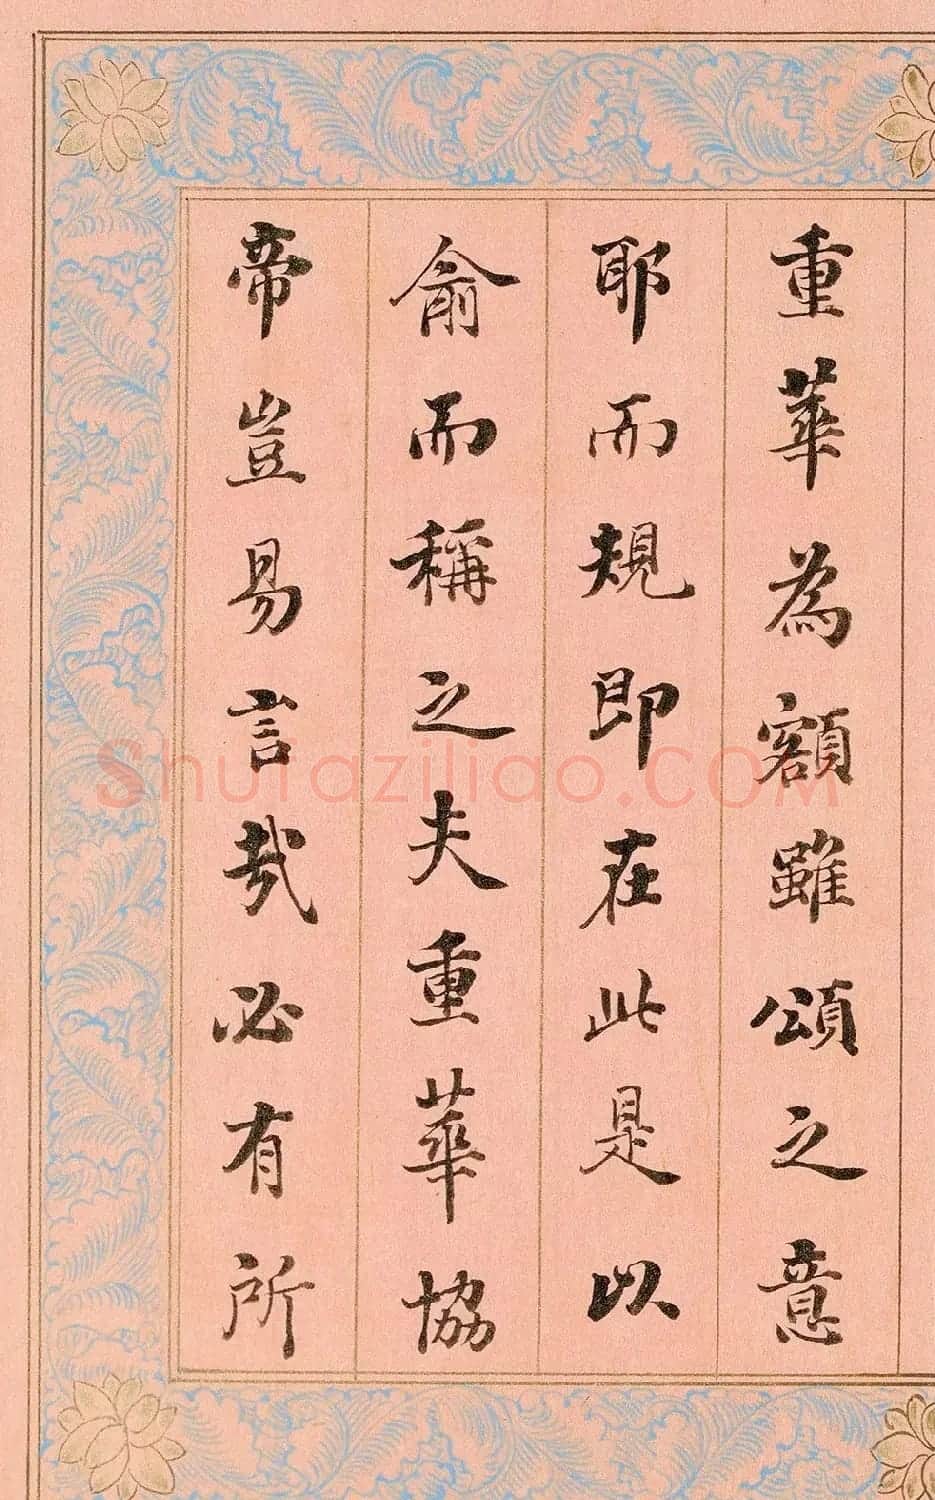 重華為額雖頌之意
耶而規即在此是以
俞而稱之夫重華協
帝豈易言哉必有所
Shufaziliao.com